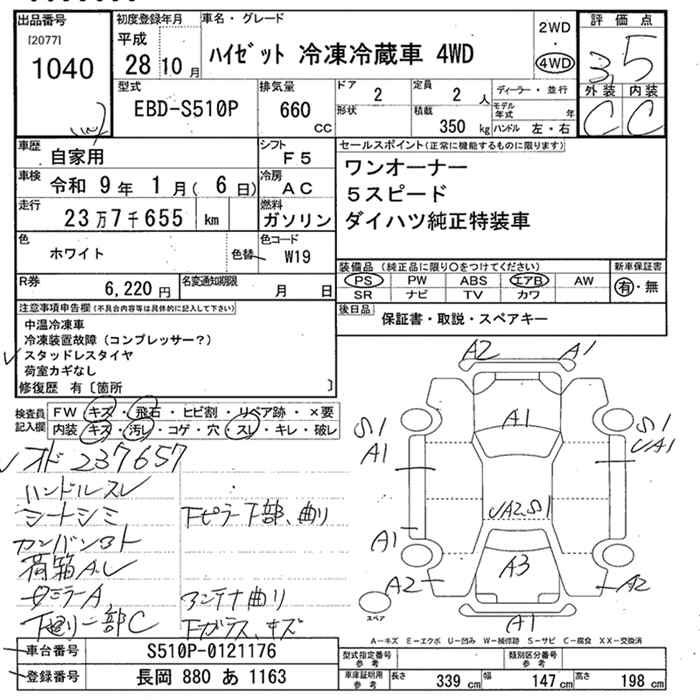 出品番号
[2077]
1040
初度登録年月
平成
28 10 月
車名・グレード
ハイゼット 冷凍冷蔵車 4WD
2WD
・
4WD
評価点
3.5
外装 内装
C C
型式
EBD-S510P
排気量
660
CC
ドア
2
形状
定員
2 人
積載
350 kg
ディーラー・並行
モデル年式 年
ハンドル 左・右
車歴
自家用
シフト
F5
車検
令和 9 年 1 月 ( 6 日)
冷房
AC
走行
23 万 7 千 655 km
燃料
ガソリン
色
ホワイト
色替
色コード
W19
R券
6,220 円
名変通知期限
月 日
セールスポイント(正常に機能するものに限ります)
ワンオーナー
5スピード
ダイハツ純正特装車
装備品(純正品に限り○をつけてください)
PS PW ABS エアB AW
SR ナビ TV カワ
新車保証書
有・無
後日品
保証書・取説・スペアキー
注意事項申告欄(不具合内容等は具体的に記入して下さい)
中温冷凍車
冷凍装置故障(コンプレッサー?)
スタッドレスタイヤ
荷室カギなし
修復歴 有〔箇所 〕
検査員記入欄
FW キズ・飛石・ヒビ割・リペア跡・×要
内装 キズ・汚レ・コゲ・穴・スレ・キレ・破レ
オド 237657
ハンドルスレ
シートシミ
下ピラー下部、曲り
荷箱A.U
アンテナ曲り
下廻り一部C
A2 A1
A1
S1
A1
S1
UA1
UA2.S1
A1
A2
A3
A2
A1
スペア
A-キズ E-エクボ U-凹み W-補修跡 S-サビ C-腐食 XX-交換済
車台番号
S510P-0121176
登録番号
長岡 880 あ 1163
型式指定番号
参考
類別区分番号
参考
車庫証明用
参考
長さ 339 cm 幅 147 cm 高さ 198 cm